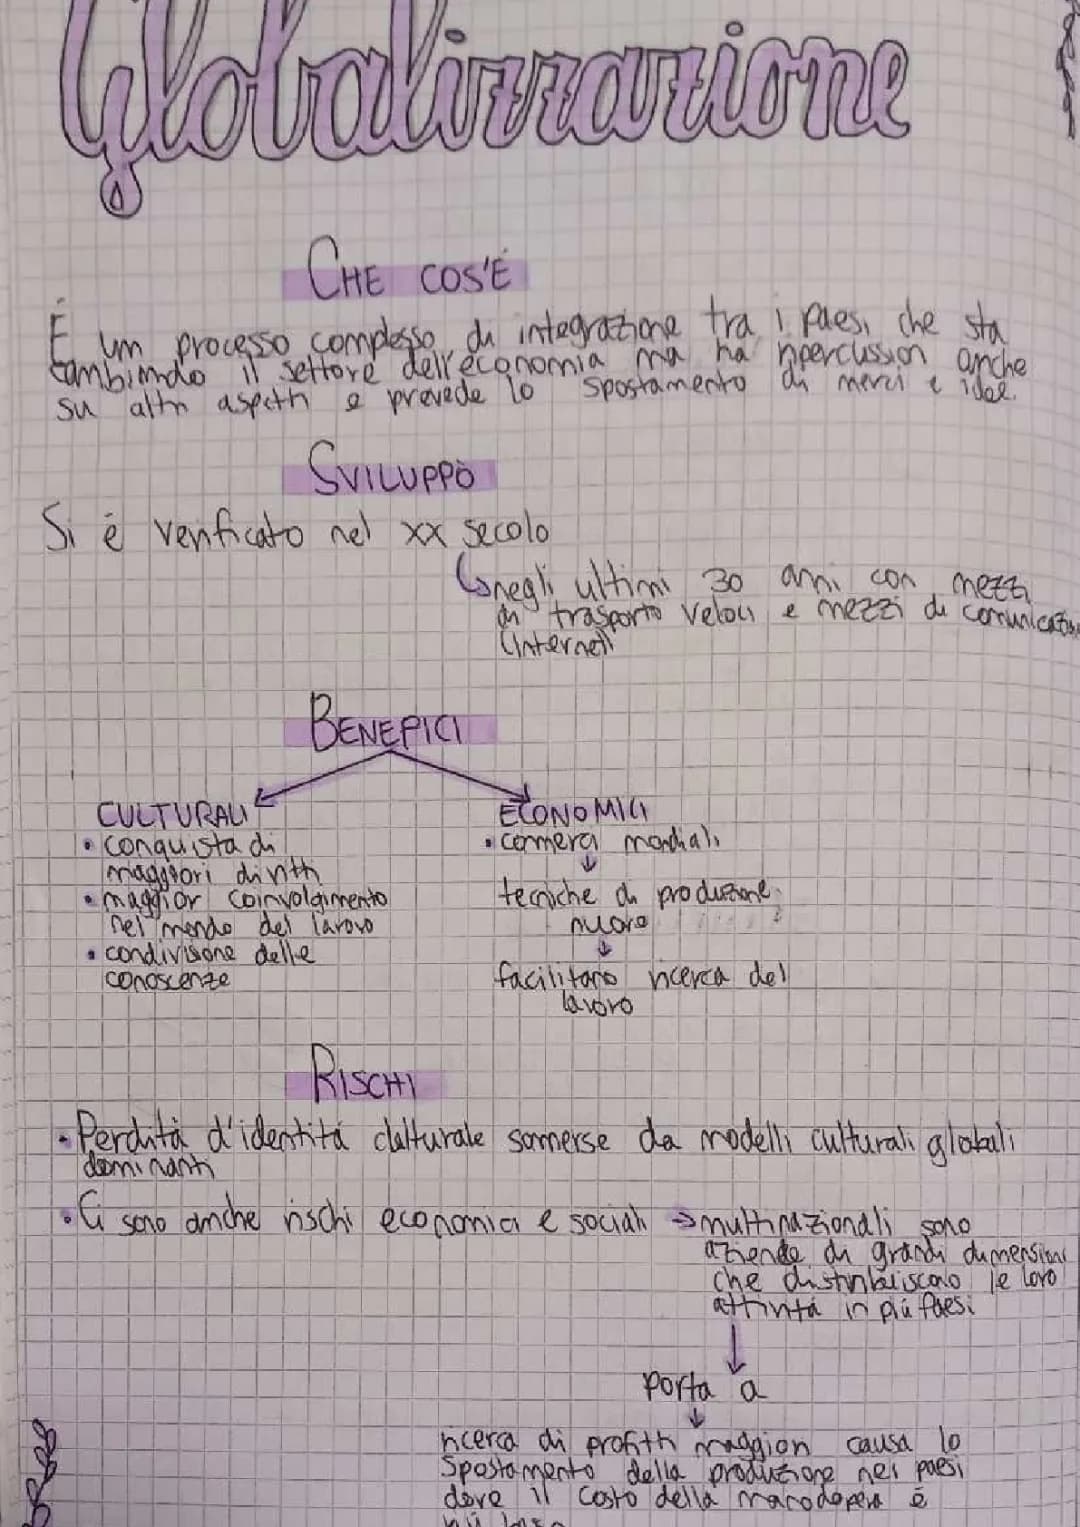 Globalizzazione
CHE COS'É
É un processo complesso di integrazione tra i paesi che sta
cambiando il settore dell'economia ma ha ripercussioni anche
su altri aspetti e prevede lo spostamento di merci e idee.
SVILUPPÒ
Si é verificato nel XX secolo
negli ultimi 30 anni con mezzi
di trasporto veloci e mezzi di comunicazione
(Internet)
BENEFICI
CULTURALI
• conquista di
maggiori diritti
• maggior coinvolgimento
nel mondo del lavoro
• condivisione delle
conoscenze
ECONOMICI
• commerci mondiali
↓
tecniche di produzione
nuove
↓
facilitano ricerca del
lavoro
RISCHI
• Perdita d'identitá culturale sommerse da modelli culturali globali
dominanti
• Ci sono anche rischi economici e sociali → multinazionali sono
aziende di grandi dimensioni
che distribuiscono le loro
attivitá in piú paesi
↓
porta a
↓
ricerca di profitti maggiori causa lo
spostamento della produzione nei paesi
dove il costo della manodopera é